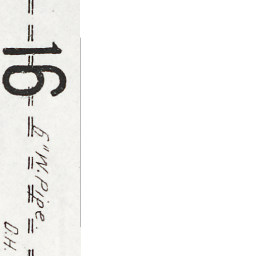 16
6" W. Pipe.
D.H.